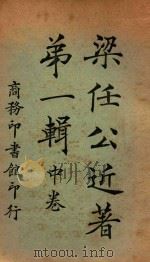 梁任公近著
第一輯 中卷
商務印書館印行
mtoou.info